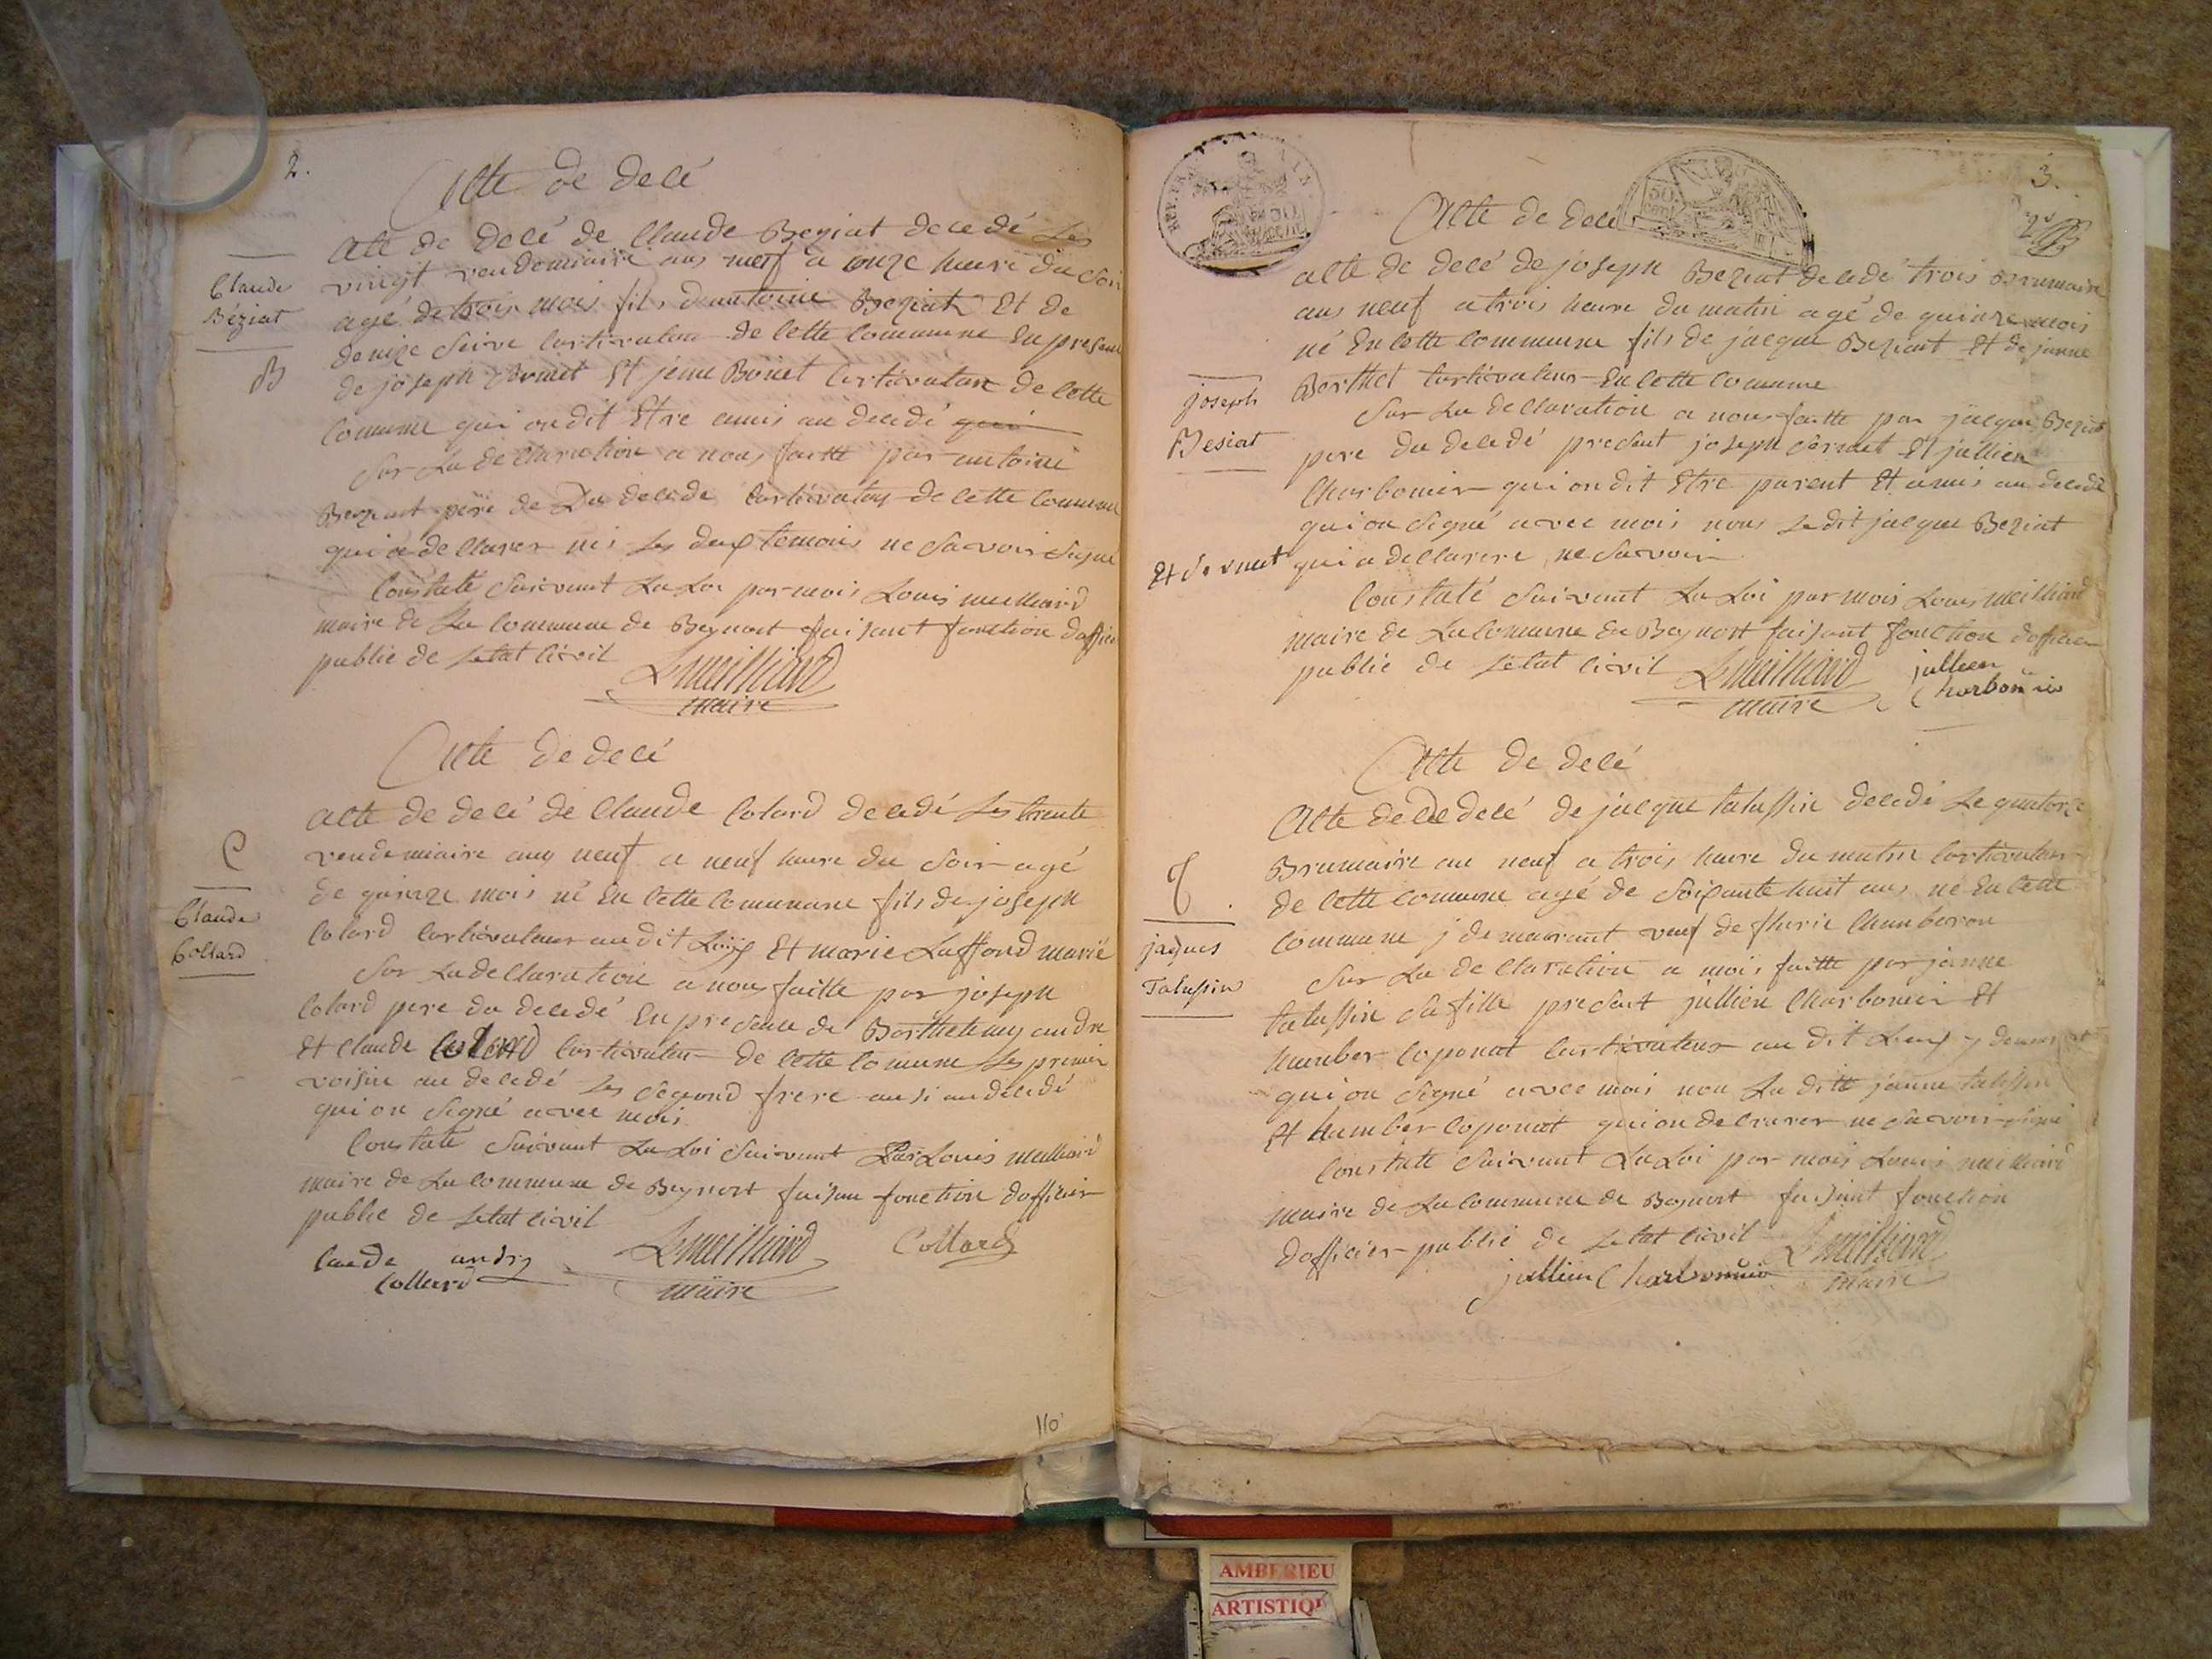 2.
Acte de decé
Claude
Béziat
B
acte de decé de Claude Beziat decedé Les
vingt vendemiaire ans neuf a onze heure du soir
agé de trois mois fils dantoine Beziat Et de
denize Seive cortivateur de cette commune En presence
de joseph Et jeme Bonet Cortivateur de cette
Comune qui on dit Etre amis au decedé qui
Sur La declaration a nous faitte par antoine
Beziat pere de Du decede Cortivateur de cette Commune
qui a declarer ni Les deux temoins ne Savoir Signé
Constaté Suivant La Loi par mois Louis meilliard
maire de La Commune de Beynost faisant fonction dofficier
public de Letat Civil Lmeilliard
maire
Acte de decé
C
Claude
Collard
acte de decé de Claude Colard decedé Les trente
vendemiaire ans neuf a neuf heure du Soir agé
de quinze mois né En Cette Commune fils de joseph
Colard Cortivateur au dit Et marie Laffond marié
Sur La declaration a nous faitte par joseph
Colard pere du decedé En presence de Barthelemy andre
Et Claude Colard Cortivateur de Cette Comune Les premier
voisin au decedé Les Segond frere ausi au decedé
qui on Signé avec mois
Constaté Suivant La Loi Suivant Par Louis meilliard
maire de La Commune de Beynost faisan fonction dofficier
public de Letat Civil
Lmeilliard Collard
Claude andre
Collard
maire
110
3.
2e
REP. FRA
50
CENT
Acte de decé
joseph
Besiat
acte de decé de joseph Beziat decedé trois Brumaire
ans neuf a trois heure du matin agé de quinze mois
né En Cette Commune fils de jacque Beziat Et de janne
Berthet Cortivateur En Cette Comune
Sur La declaration a nous faitte par jacque Beziat
pere du decedé present joseph Sernet Et jullien
Charbonier qui on dit Etre parent Et amis au decedé
qui on Signé avec mois nous Le dit jacque Beziat
Et Sernet qui a declarere ne Savoir
Constaté Suivant La Loi par mois Louis meilliard
maire de La Comune de Beynost faisant fonction dofficier
public de Letat Civil Lmeilliard jullien
Charbonnier
maire
Acte de decé
jaques
Talussin
Acte de De decé de jacque talussin decedé Le quatorze
Brumaire an neuf a trois heure du matin Cortivateur
de Cette Comune agé de Soixante huit ans né En Cette
Commune j demeurant veuf de flurie Chamberon
Sur La declaration a mois faitte par janne
talussin Sa fille present jullien Charbonier Et
humber Coponat Cortivateur au dit Lieux y demeurant
qui on Signé avec mois non La ditte janne talussin
Et humber Coponat qui on declarer ne Savoir Signé
Constaté Suivant La Loi par mois Louis meilliard
maire de La Commune de Beynost faisant fonction
dofficier public de Letat Civil Lmeilliard
jullien Charbonnier maire
AMBERIEU
ARTISTIQ